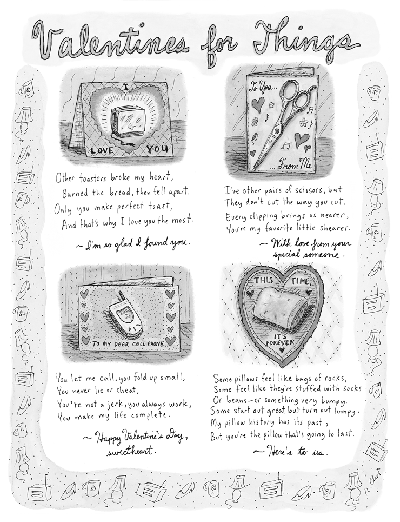 Valentines for Things
I
LOVE YOU
Other toasters broke my heart,
Burned the bread, they fell apart.
Only you make perfect toast,
And that's why I love you the most.
~ I'm so glad I found you.
To You...
...From Me
I've other pairs of scissors, but
They don't cut the way you cut.
Every clipping brings us nearer,
You're my favorite little shearer.
~ With love from your
special someone
TO MY DEAR CELL PHONE
You let me call, you fold up small,
You never lie or cheat.
You're not a jerk, you always work,
You make my life complete.
~ Happy Valentine's Day,
sweetheart.
THIS TIME,
IT'S
FOREVER
Some pillows feel like bags of rocks,
Some feel like they're stuffed with socks
Or beans—or something very bumpy.
Some start out great but turn out lumpy.
My pillow history has its past,
But you're the pillow that's going to last.
~ Here's to us.